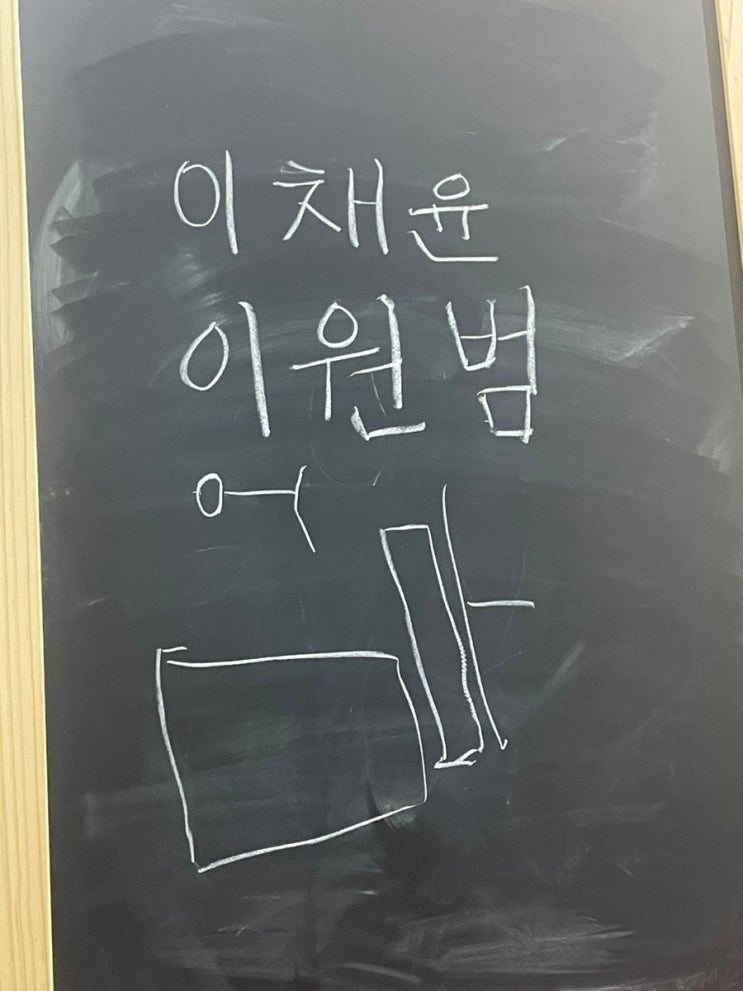 이채윤
이원범